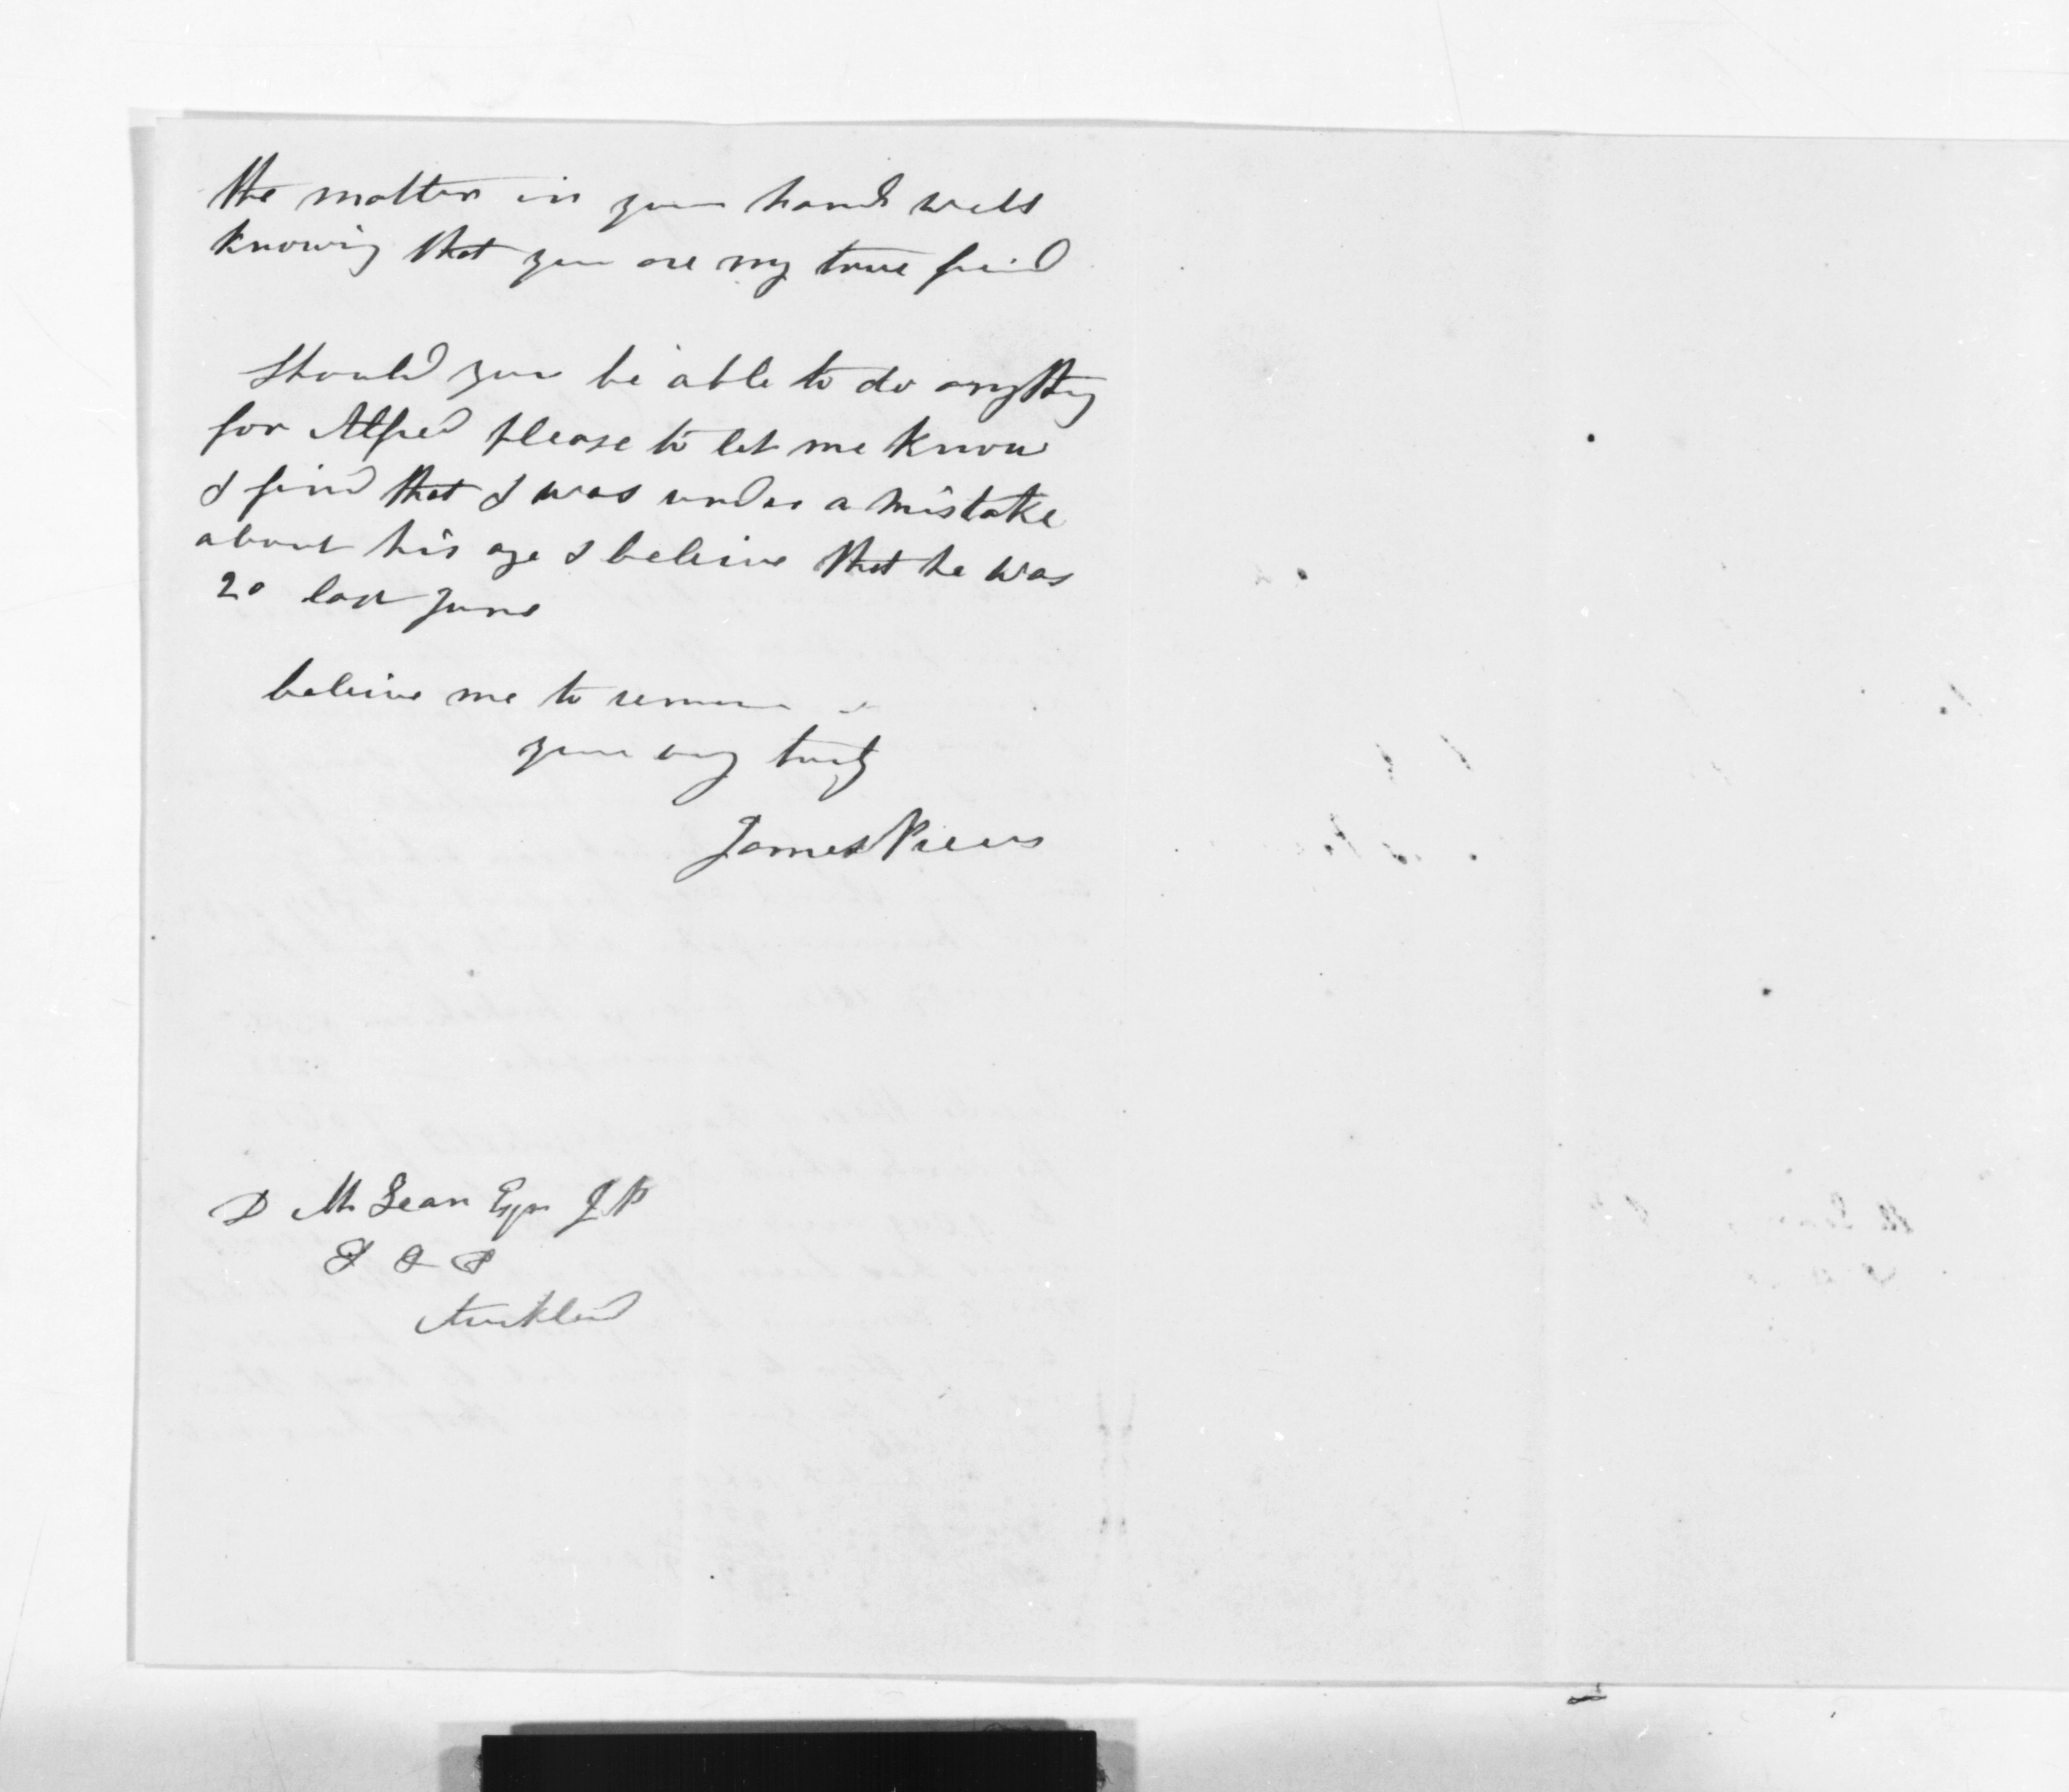 the matter in your hands well
knowing that you are my true freind
Should you be able to do anything
for Alfred please to let me know
I find that I was under a mistake
about his age I beleive that he was
20 last June
beleive me to remain
yours very truly
James Preece
D McLean Esqr JP
&c &c &c
Auckland